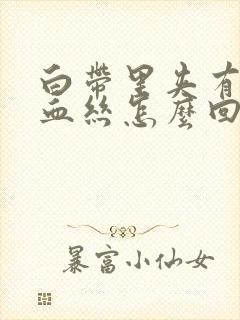 白带里夹有
血丝怎麼回
暴富小仙女